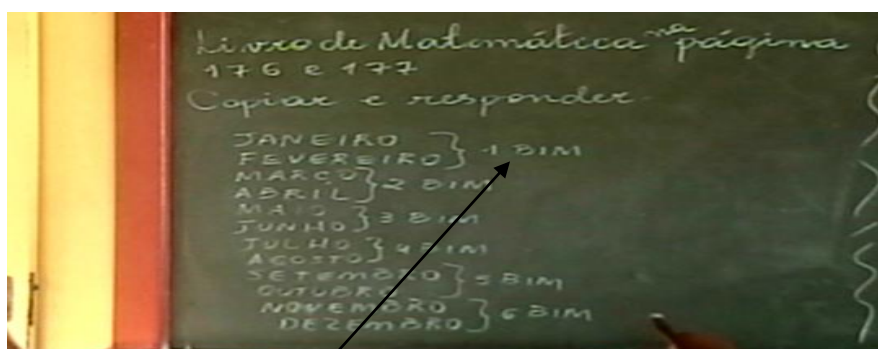 Livro de Matemática na página
176 e 177
Copiar e responder.
JANEIRO
FEVEREIRO } 1 BIM
MARÇO
ABRIL } 2 BIM
MAIO
JUNHO } 3 BIM
JULHO
AGOSTO } 4 BIM
SETEMBRO
OUTUBRO } 5 BIM
NOVEMBRO
DEZEMBRO } 6 BIM